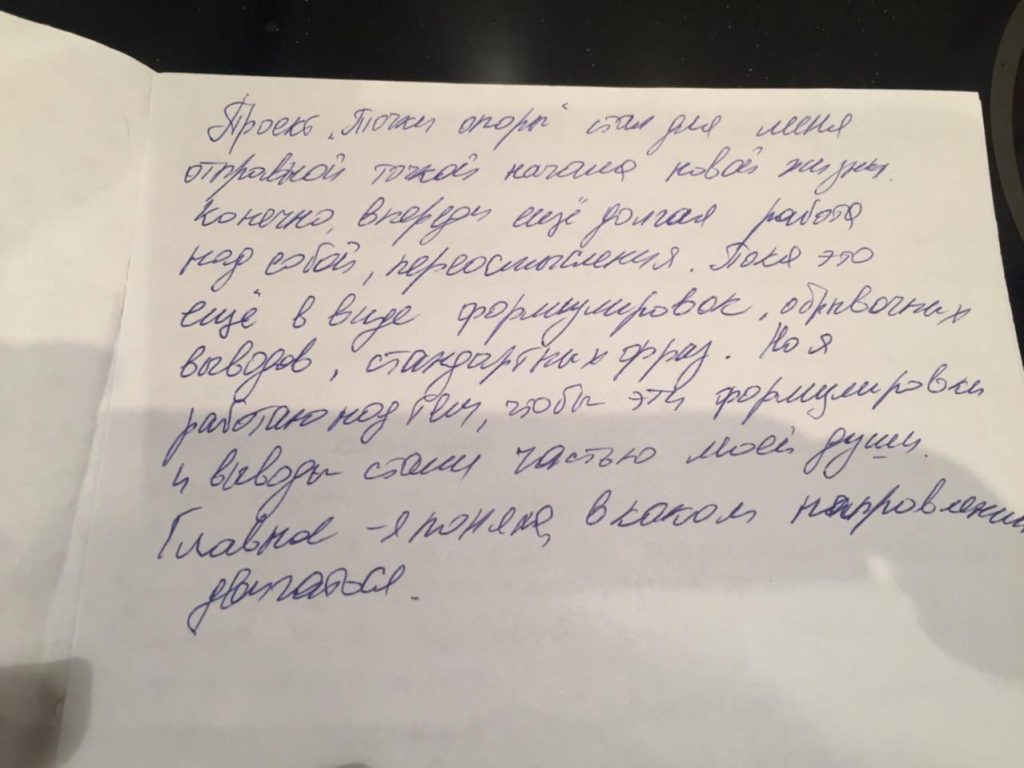 Проект „Точки опоры“ стал для меня
отправной точкой начала новой жизни.
Конечно, впереди ещё долгая работа
над собой, переосмысления. Пока это
ещё в виде формулировок, обрывочных
выводов, стандартных фраз. Но я
работаю над тем, чтобы эти формулировки
и выводы стали частью моей души.
Главное - я поняла, в каком направлении
двигаться.